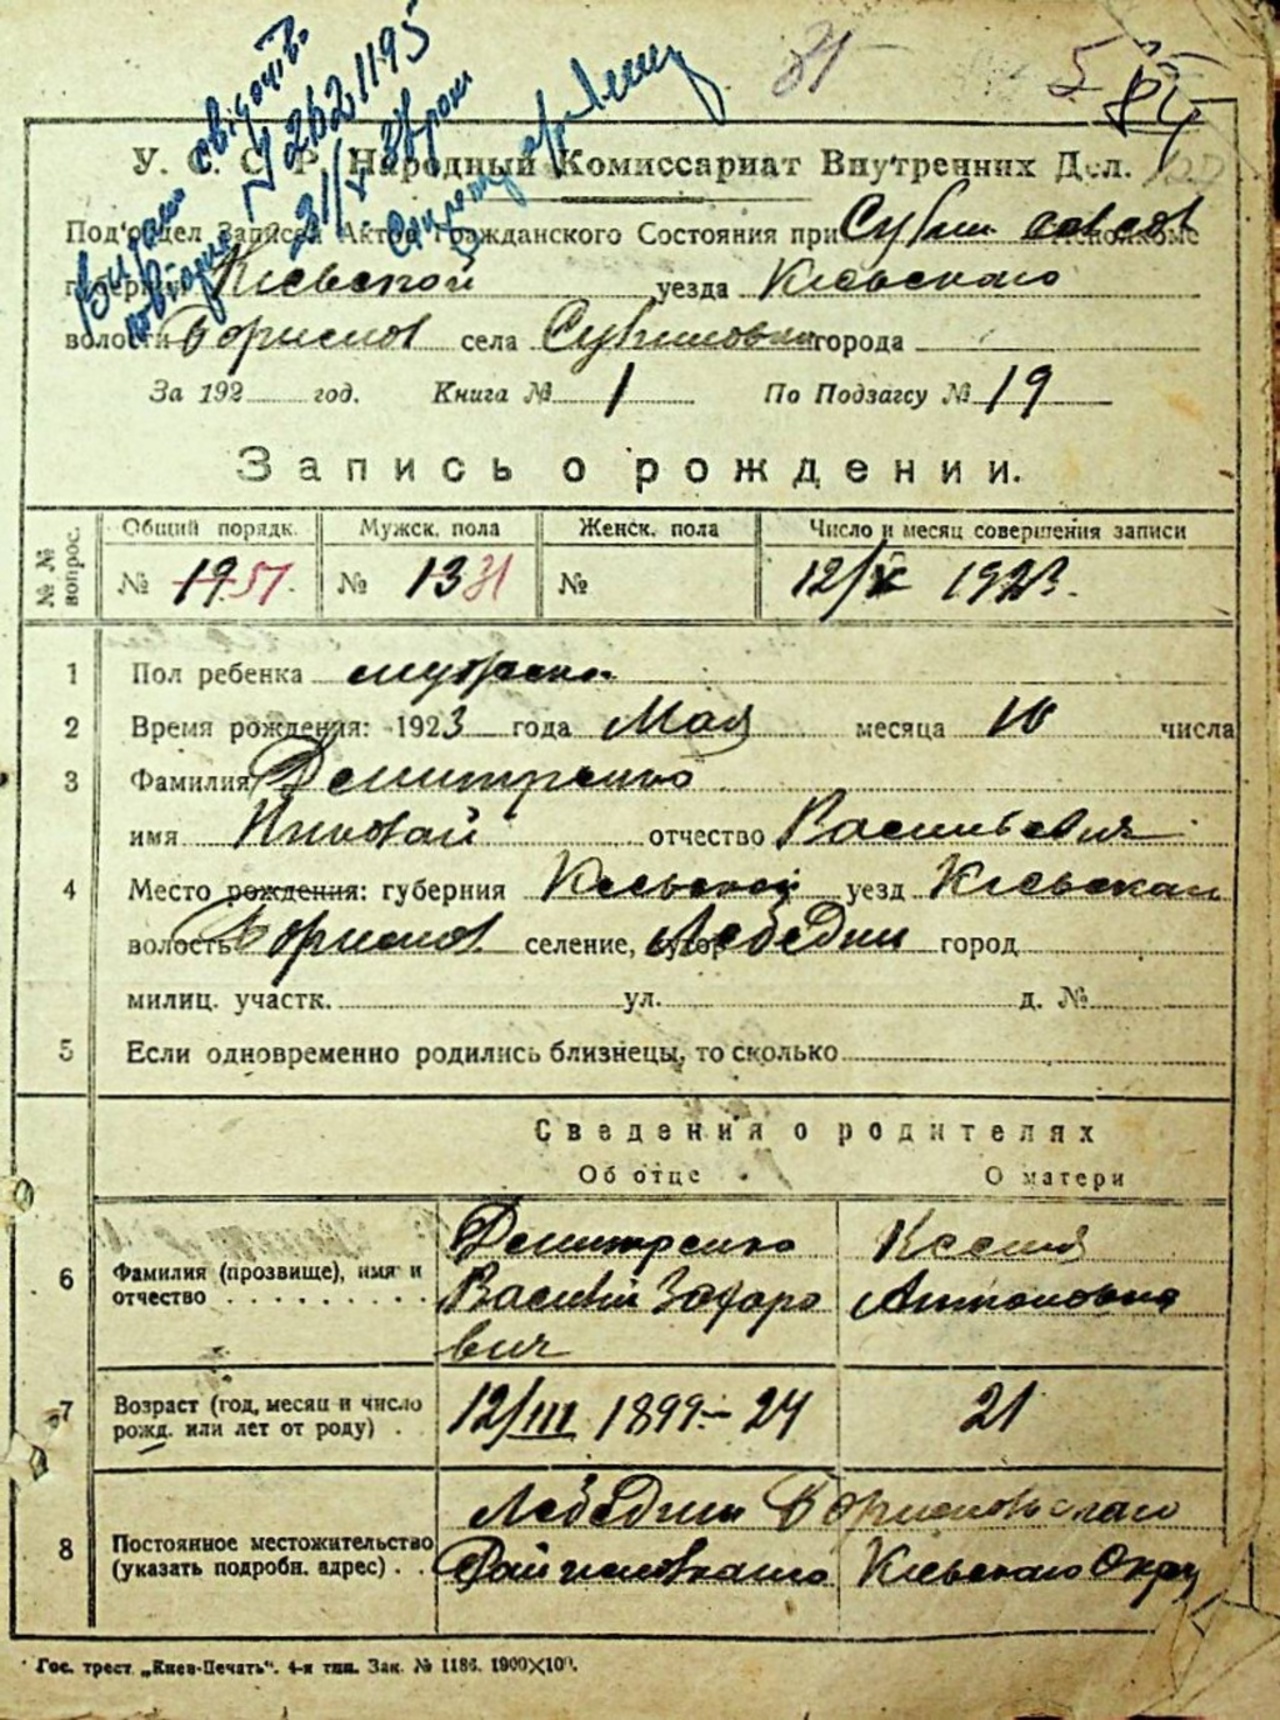 31 5
У. С. С. Р. Народный Комиссариат Внутренних Дел.
Под'отдел Записей Актов Гражданского Состояния при
губернии Киевской уезда Киевскаго
волости села города
За 192 год. Книга № 1 По Подзагсу № 19
Запись о рождении.
№ № вопрос. Общий порядк. Мужск. пола Женск. пола Число и месяц совершения записи
№ 19 51 № 13 31 № 12/V 1923.
1 Пол ребенка
2 Время рождения: 1923 года Мая месяца 10 числа
3 Фамилия Демитренко
имя Николай отчество Васильевич
4 Место рождения: губерния Киевской уезд Киевскаго
волость селение, хутор Лебедин город
милиц. участк. ул. д. №
5 Если одновременно родились близнецы, то сколько
Сведения о родителях
Об отце О матери
6 Фамилия (прозвище), имя и отчество Демитренко Ксения
Василий Захаро Антоновна
вич
7 Возраст (год, месяц и число рожд. или лет от роду) 12/III 1899 - 24 21
8 Постоянное местожительство (указать подробн. адрес) Лебедин
Киевскаго Окру
Гос. трест „Киев-Печать“. 4-я тип. Зак. № 1186. 1900×100.